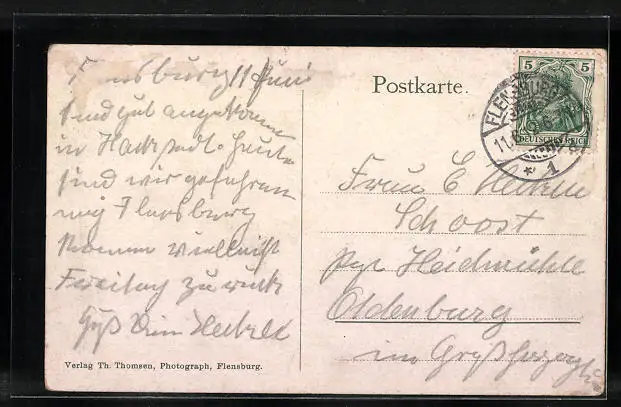 Flensburg 11 Juni
sind gut angekommen
in Hadersl. Heute
sind wir gefahren
Flensburg
kommen vielleicht
Freitag zurück
Gruß Dein
Verlag Th. Thomsen, Photograph, Flensburg.
Postkarte.
5 5
DEUTSCHES REICH
FLENSBURG
11.
* 1
Frau E
Schoost
Heidmühle
Oldenburg
im Großherzogtu